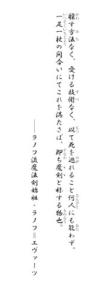 躱す方法なく、受ける技術なく、以て死を逃れること何人にも能わず。
一足一杖の間合いにてこれを満たさば、即ち魔剣と称する物也。
――ラノフ流魔法剣始祖・ラノフ=エヴァーツ